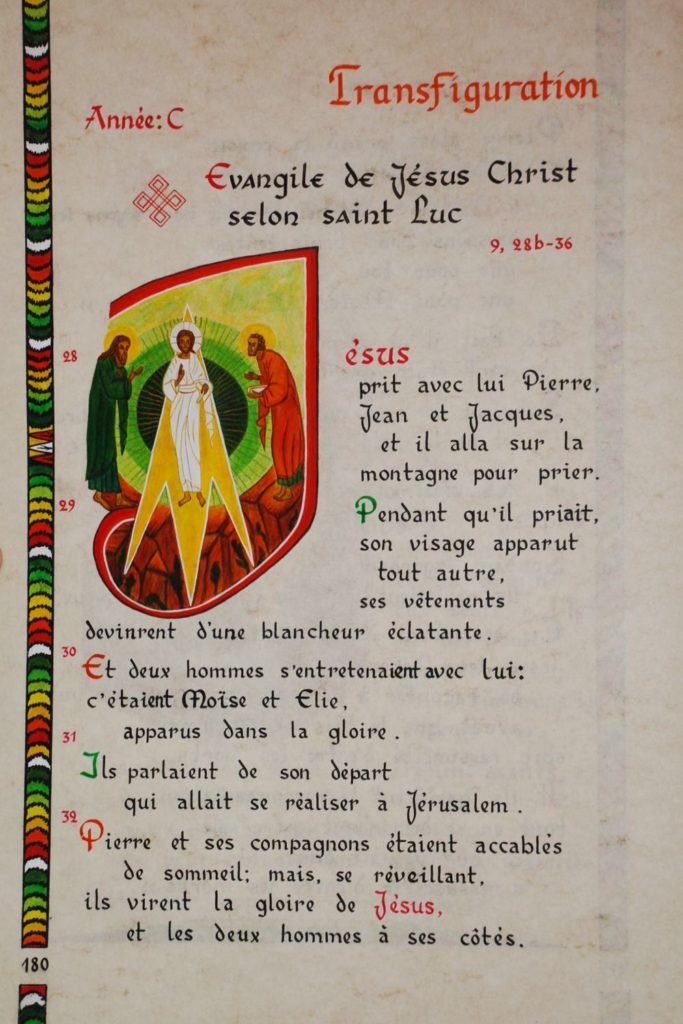 Transfiguration
Année: C
Evangile de Jésus Christ
selon saint Luc
9, 28b-36
28
ésus
prit avec lui Pierre,
Jean et Jacques,
et il alla sur la
montagne pour prier.
29
Pendant qu'il priait,
son visage apparut
tout autre,
ses vêtements
devinrent d'une blancheur éclatante.
30
Et deux hommes s'entretenaient avec lui:
c'étaient Moïse et Elie,
apparus dans la gloire.
31
Ils parlaient de son départ
qui allait se réaliser à Jérusalem.
32
Pierre et ses compagnons étaient accablés
de sommeil; mais, se réveillant,
ils virent la gloire de Jésus,
et les deux hommes à ses côtés.
180